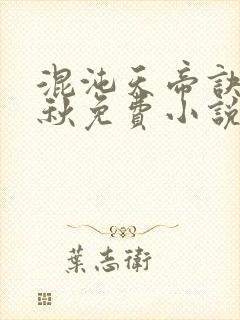 混沌天帝訣
秋免費小說
葉志衛